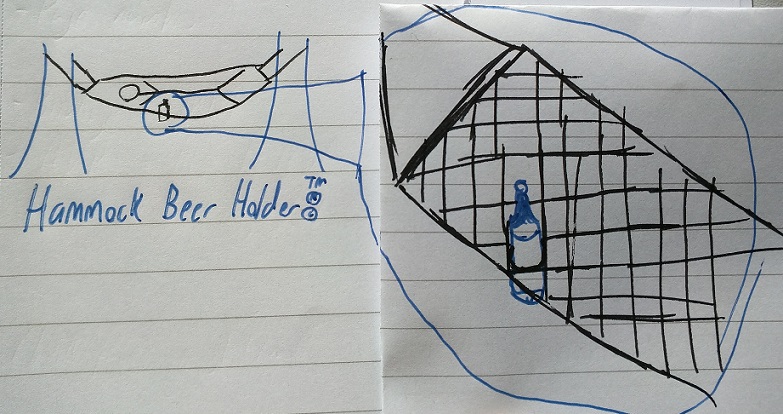 Hammock Beer Holder ™ ® ©